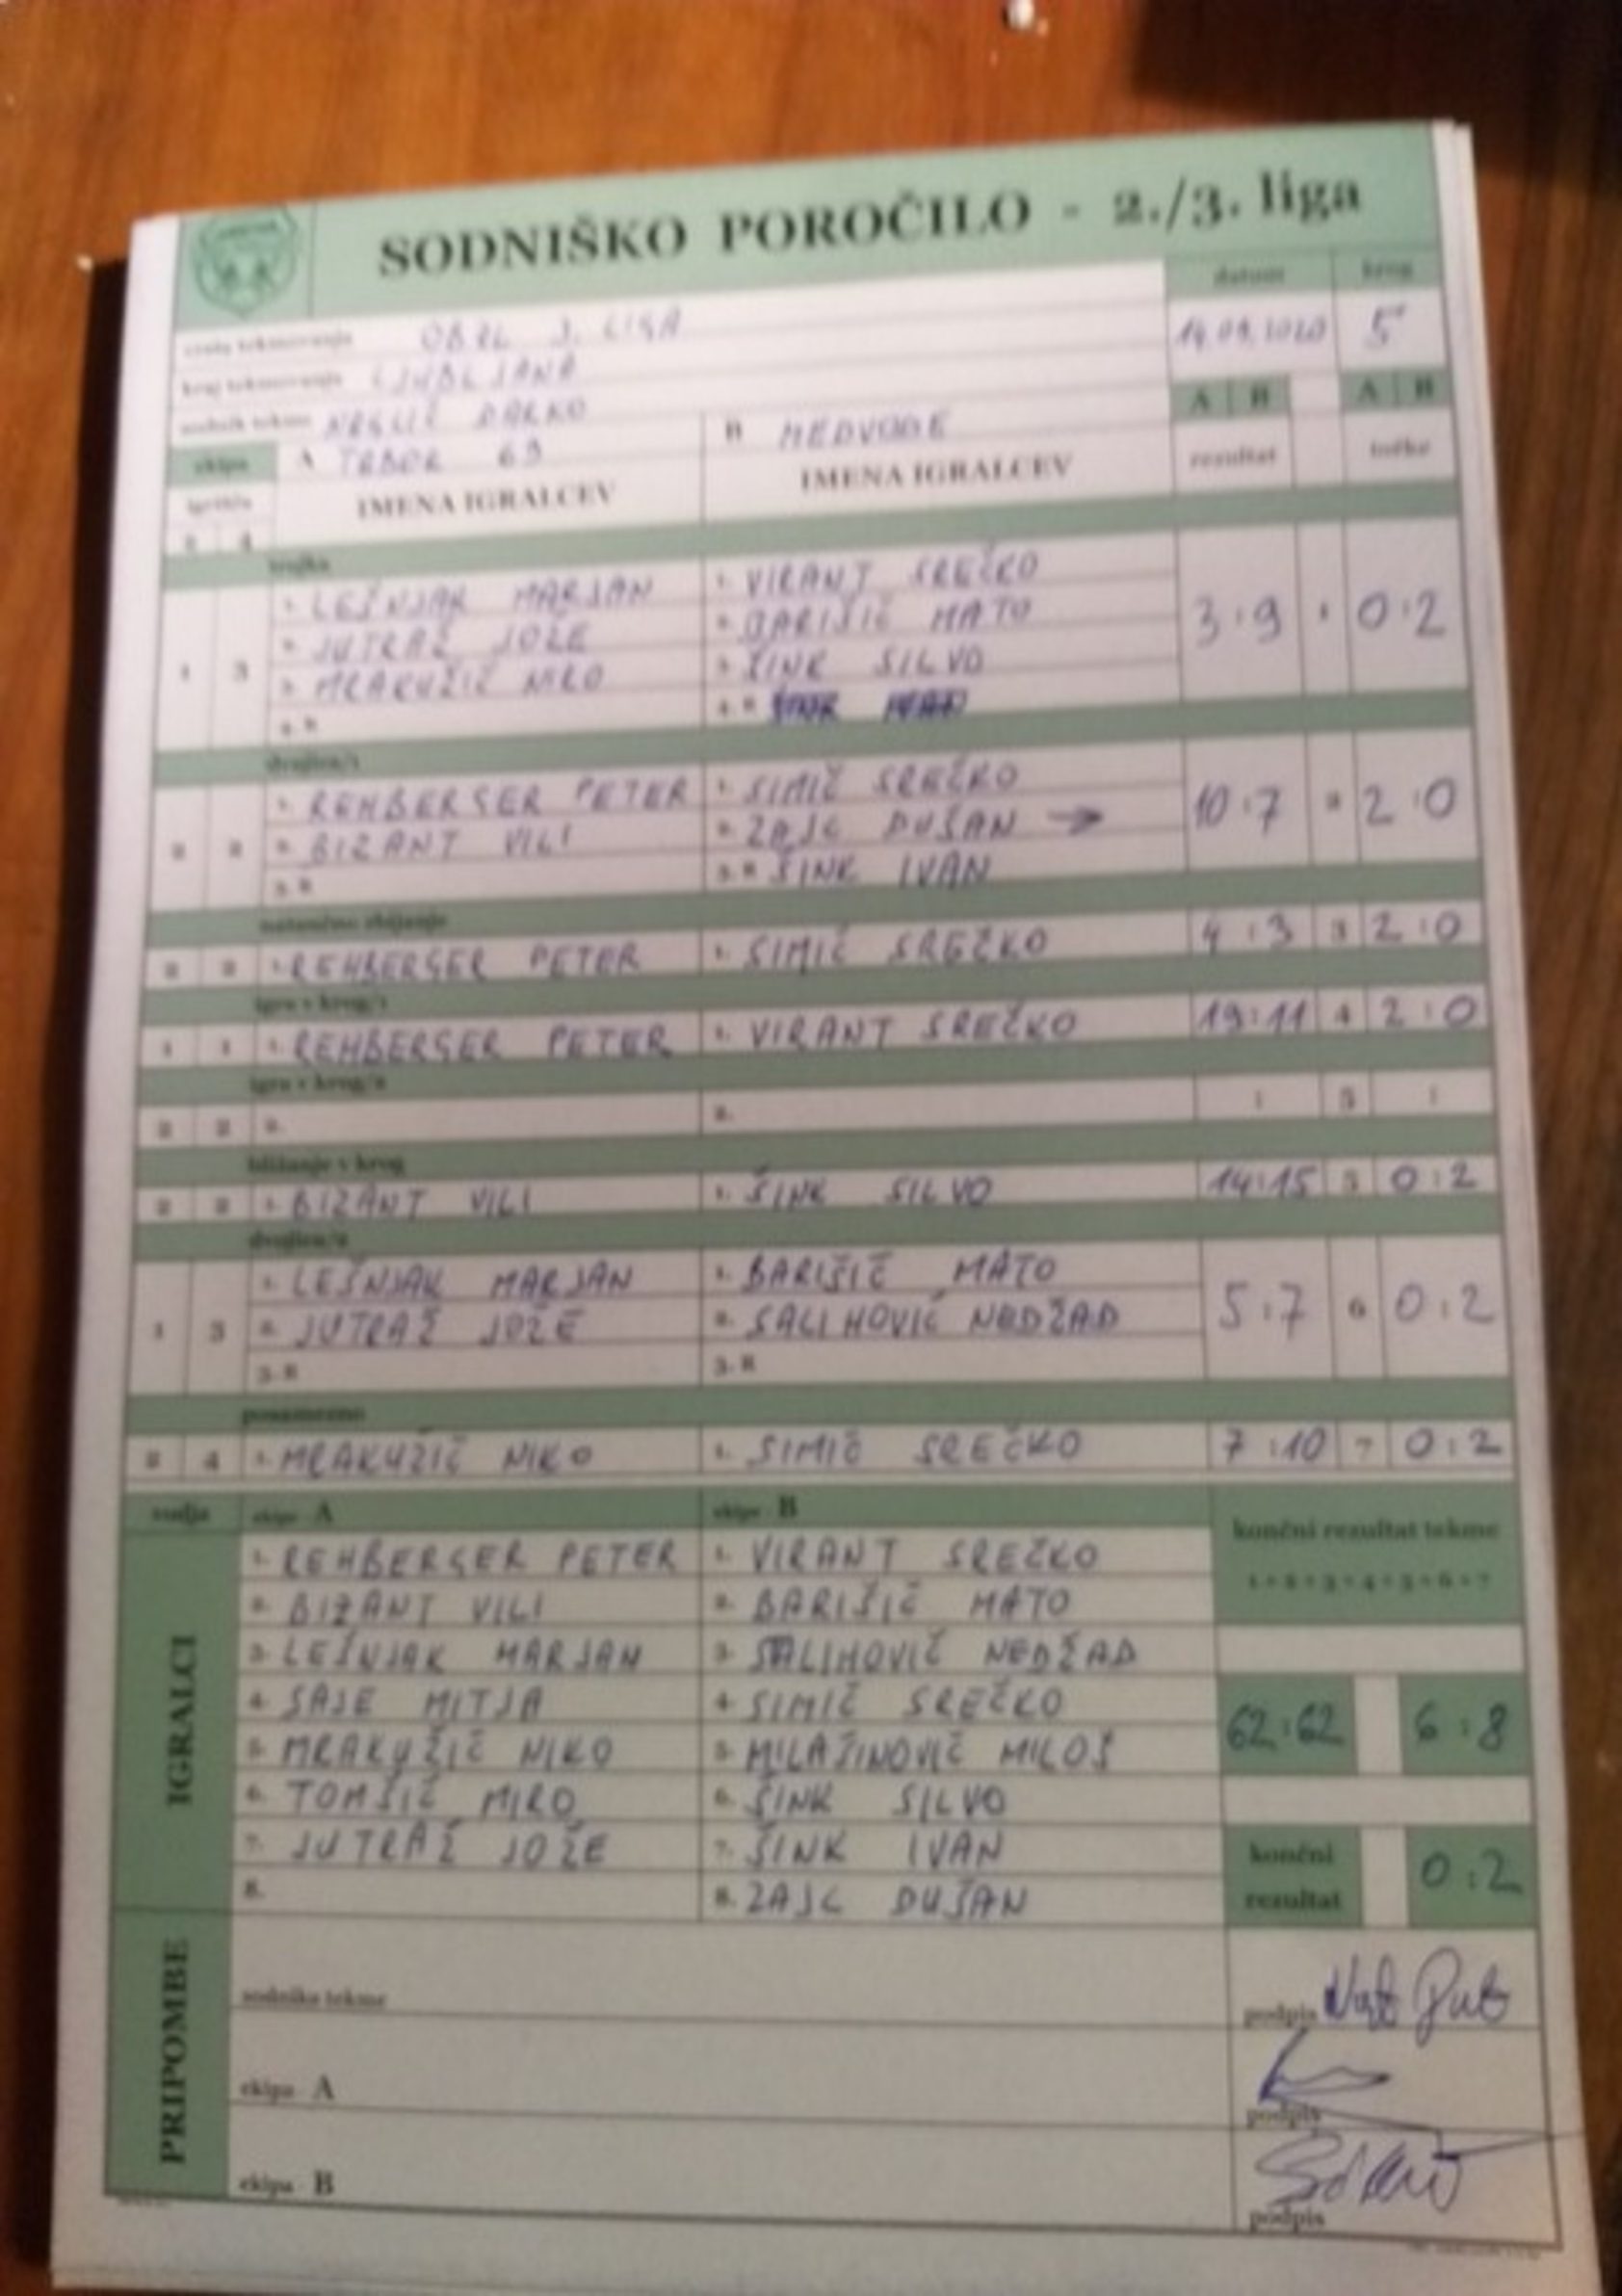 SODNIŠKO POROČILO - 2./3. liga
datum krog
vrsta tekmovanja OBZL 3. LIGA
14.09.2020 5
kraj tekmovanja LJUBLJANA
sodnik tekme DARKO
A B A B
ekipa A TABOR 69 B MEDVODE
rezultat točke
igrišča IMENA IGRALCEV IMENA IGRALCEV
2 4
trojka
1. LEŠNJAK MARJAN 1. VIRANT SREČKO
1 3 2. JUTRAŽ JOŽE 2. BARIŠIČ MATO 3:9 1 0:2
3. MRAKUŽIČ NIKO 3. ŠINK SILVO
4. R 4. R
dvojica/1
1. REHBERGER PETER 1. SIMIČ SREČKO
2 2 2. BIZANT VILI 2. ZAJC DUŠAN → 10:7 2 2:0
3. R 3. R ŠINK IVAN
natančno zbijanje
2 2 1. REHBERGER PETER 1. SIMIČ SREČKO 4:3 3 2:0
igra v krog/1
1 1 1. REHBERGER PETER 1. VIRANT SREČKO 19:11 4 2:0
igra v krog/2
2 2 2. 2. : 5 :
bližanje v krog
2 2 1. BIZANT VILI 1. ŠINK SILVO 14:15 5 0:2
dvojica/2
1. LEŠNJAK MARJAN 1. BARIŠIČ MATO
1 3 2. JUTRAŽ JOŽE 2. SALIHOVIČ NEDŽAD 5:7 6 0:2
3. R 3. R
posamezno
2 4 1. MRAKUŽIČ NIKO 1. SIMIČ SREČKO 7:10 7 0:2
vodja ekipe A ekipe B
končni rezultat tekme
1+2+3+4+5+6+7
IGRALCI
1. REHBERGER PETER 1. VIRANT SREČKO
2. BIZANT VILI 2. BARIŠIČ MATO
3. LEŠNJAK MARJAN 3. SALIHOVIČ NEDŽAD
4. SAJE MITJA 4. SIMIČ SREČKO 62:62 6:8
5. MRAKUŽIČ NIKO 5. MILAŠINOVIČ MILOŠ
6. TOMŠIČ MIRO 6. ŠINK SILVO
7. JUTRAŽ JOŽE 7. ŠINK IVAN
8. 8. ZAJC DUŠAN
končni rezultat 0:2
PRIPOMBE
sodnika tekme podpis
ekipa A podpis
ekipa B podpis